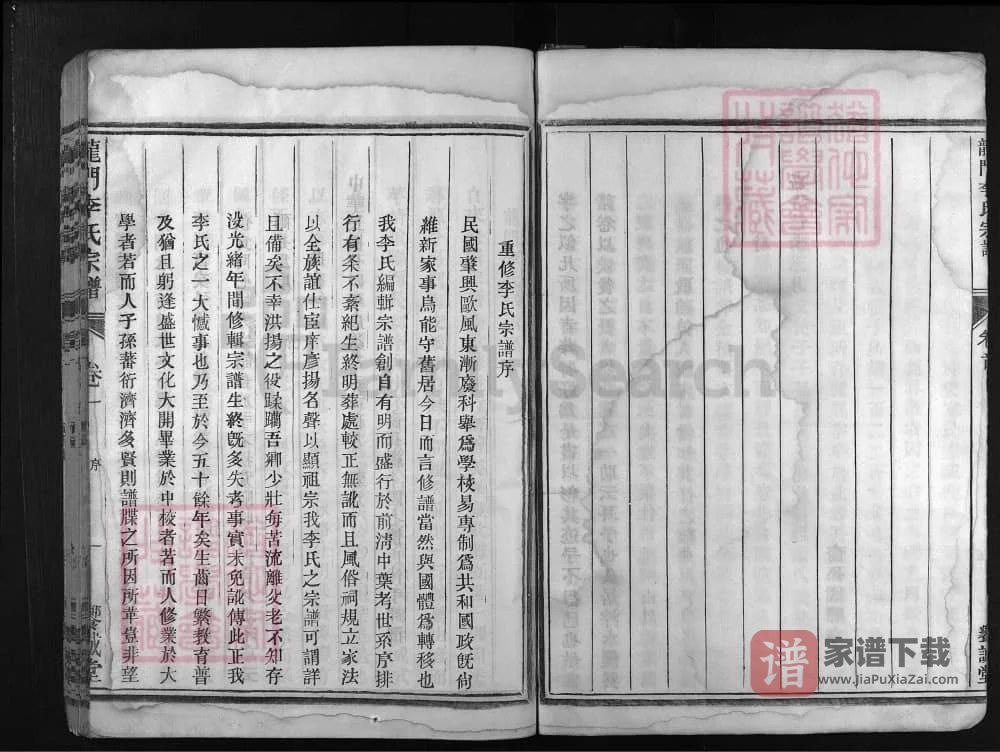 龍門李氏宗譜
重修李氏宗譜序
民國肇興歐風東漸廢科舉爲學校易專制爲共和國政旣尙
維新家事烏能守舊居今日而言修譜當然與國體爲轉移也
我李氏編輯宗譜創自有明而盛行於前淸中葉考世系序排
行有条不紊紀生終明葬處較正無訛而且風俗祠規立家法
以全族誼仕宦庠彦揚名聲以顯祖宗我李氏之宗譜可謂詳
且備矣不幸洪揚之役蹂躪吾鄉少壯每苦流離父老不知存
没光緒年間修輯宗譜生終旣多失考事實未免訛傳此正我
李氏之一大憾事也乃至於今五十餘年矣生齒日繁教育普
及猶且躬逢盛世文化大開畢業於中校者若而人修業於大
學者若而人子孫蕃衍濟濟多賢則譜牒之所因所革豈非望
龍門李氏宗譜
卷一
序
一
Family Search
谱
家谱下载
www.JiaPuXiaZai.com